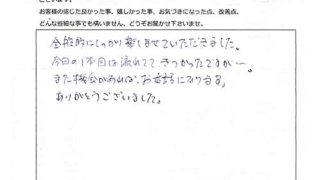 お客様の感じた良かった事、嬉しかった事、お気づきになった点、改善点、
どんな些細な事でも構いません、どうぞお聞かせ下さいませ。
全般的にしっかり楽しませていただきました。
今日の1本目は流れてて きつかったですが…。
また機会があれば、お世話になります。
ありがとうございました。